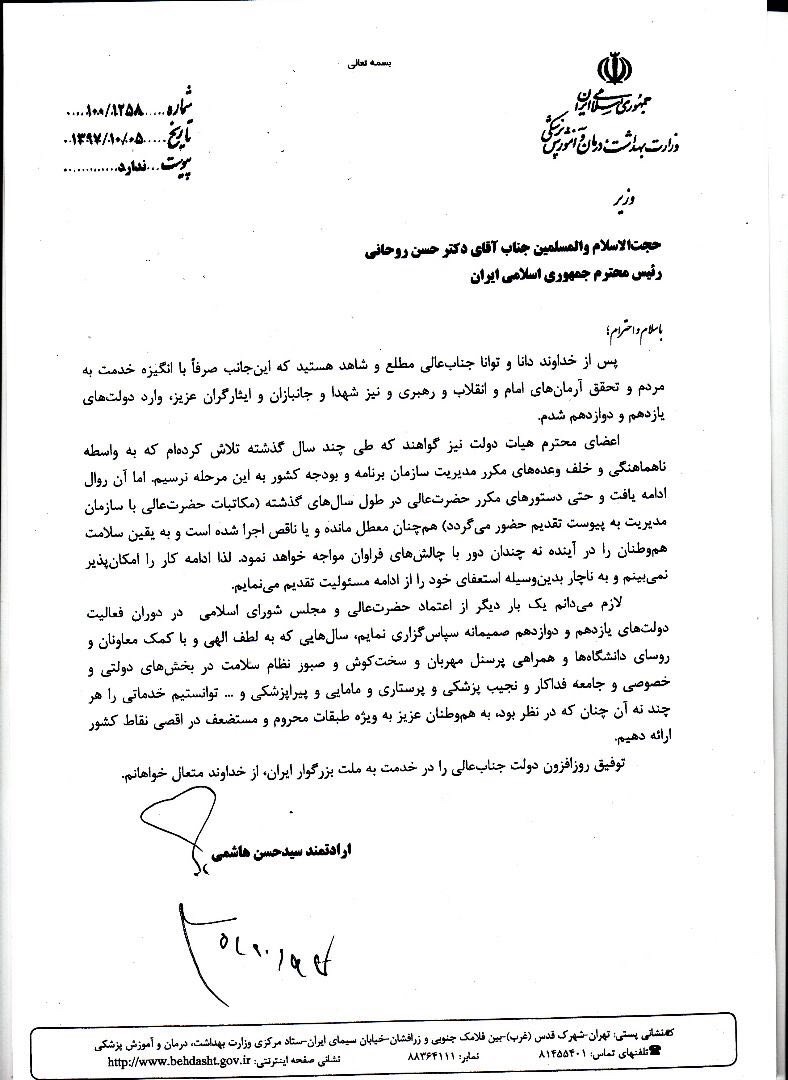 بسمه تعالی
جمهوری اسلامی ایران
وزارت بهداشت، درمان و آموزش پزشکی
وزیر
شماره.....۱۰۰/۱۲۵۸.....
تاریخ.....۱۳۹۷/۱۰/۰۵.
پیوست...ندارد.............
حجت‌الاسلام والمسلمین جناب آقای دکتر حسن روحانی
رئیس محترم جمهوری اسلامی ایران
با سلام و احترام؛
پس از خداوند دانا و توانا جناب‌عالی مطلع و شاهد هستید که این‌جانب صرفاً با انگیزه خدمت به
مردم و تحقق آرمان‌های امام و انقلاب و رهبری و نیز شهدا و جانبازان و ایثارگران عزیز، وارد دولت‌های
یازدهم و دوازدهم شدم.
اعضای محترم هیات دولت نیز گواهند که طی چند سال گذشته تلاش کرده‌ام که به واسطه
ناهماهنگی و خلف وعده‌های مکرر مدیریت سازمان برنامه و بودجه کشور به این مرحله نرسیم. اما آن روال
ادامه یافت و حتی دستورهای مکرر حضرت‌عالی در طول سال‌های گذشته (مکاتبات حضرت‌عالی با سازمان
مدیریت به پیوست تقدیم حضور می‌گردد) هم‌چنان معطل مانده و یا ناقص اجرا شده است و به یقین سلامت
هم‌وطنان را در آینده نه چندان دور با چالش‌های فراوان مواجه خواهد نمود. لذا ادامه کار را امکان‌پذیر
نمی‌بینم و به ناچار بدین‌وسیله استعفای خود را از ادامه مسئولیت تقدیم می‌نمایم.
لازم می‌دانم یک بار دیگر از اعتماد حضرت‌عالی و مجلس شورای اسلامی در دوران فعالیت
دولت‌های یازدهم و دوازدهم صمیمانه سپاس‌گزاری نمایم، سال‌هایی که به لطف الهی و با کمک معاونان و
روسای دانشگاه‌ها و همراهی پرسنل مهربان و سخت‌کوش و صبور نظام سلامت در بخش‌های دولتی و
خصوصی و جامعه فداکار و نجیب پزشکی و پرستاری و مامایی و پیراپزشکی و ... توانستیم خدماتی را هر
چند نه آن چنان که در نظر بود، به هم‌وطنان عزیز به ویژه طبقات محروم و مستضعف در اقصی نقاط کشور
ارائه دهیم.
توفیق روزافزون دولت جناب‌عالی را در خدمت به ملت بزرگوار ایران، از خداوند متعال خواهانم.
ارادتمند سیدحسن هاشمی
نشانی پستی: تهران-شهرک قدس (غرب)-بین فلامک جنوبی و زرافشان-خیابان سیمای ایران-ستاد مرکزی وزارت بهداشت، درمان و آموزش پزشکی
تلفنهای تماس: ۸۱۴۵۵۴۰۱ نمابر: ۸۸۳۶۴۱۱۱ نشانی صفحه اینترنتی: http://www.behdasht.gov.ir